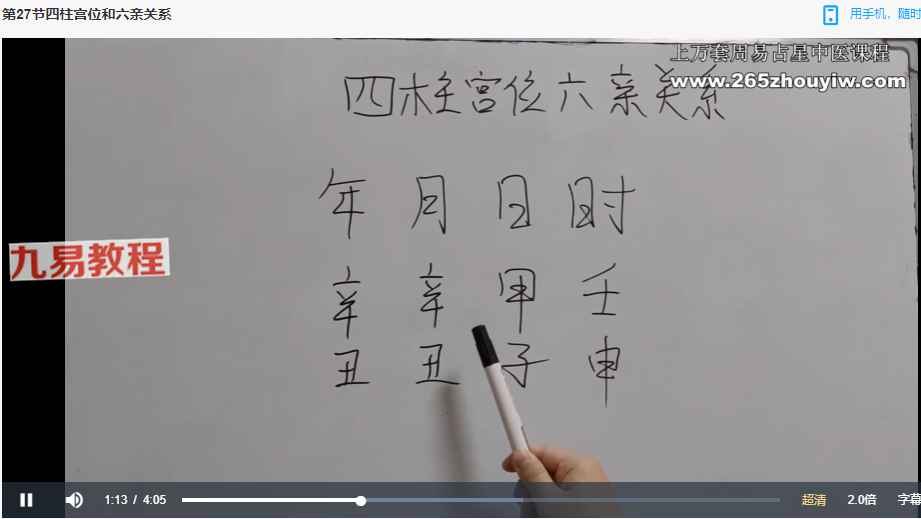 第27节四柱宫位和六亲关系
用手机，随时
上万套周易占星中医课程
www.265zhouyiw.com
四柱宫位六亲关系
年 月 日 时
九易教程
辛 辛 甲 壬
丑 丑 子 申
1:13 / 4:05
超清 2.0倍 字幕